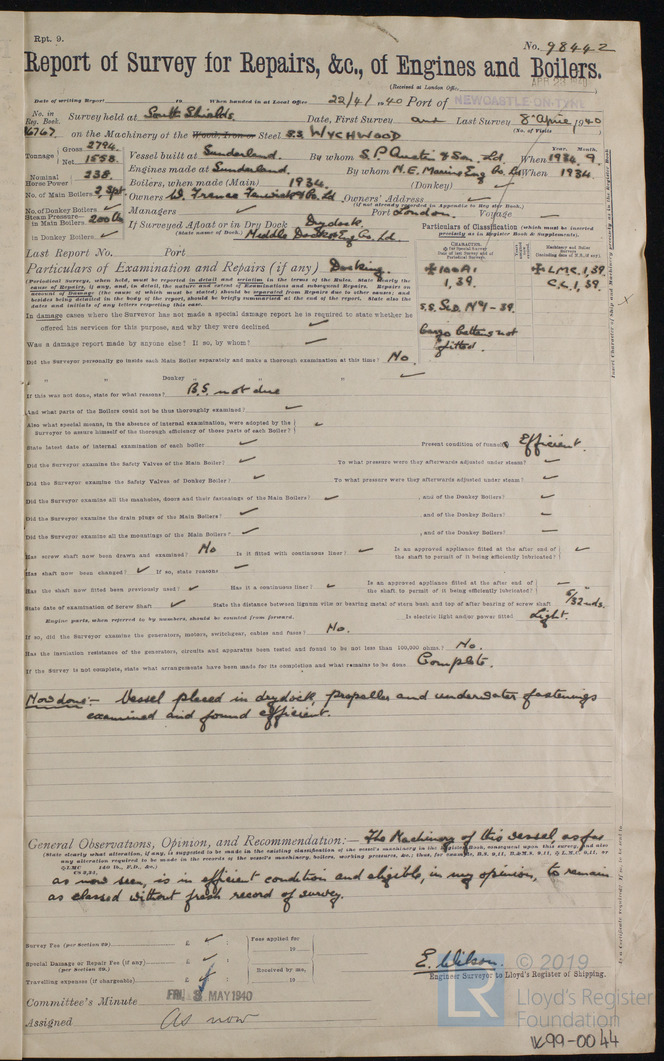 Rpt. 9.
No. 98442
Report of Survey for Repairs, &c., of Engines and Boilers.
(Received at London Office
Date of writing Report to When handed in at Local Office 22/4/1940 Port of NEWCASTLE-ON-TYNE
No. in Reg. Book. Survey held at South Shields Date, First Survey and Last Survey 8th April 1940
(No. of Visits
on the Machinery of the Wood, Iron or Steel S.S. WYCHWOOD
Tonnage Gross 2794 Net 1558 Vessel built at Sunderland. By whom S. P. Austin & Son, Ld When 1934, 9.
Year. Month.
Engines made at Sunderland. By whom N.E. Marine Eng Co. Ld When 1934
Nominal Horse Power 238 Boilers, when made (Main) 1934 (Donkey) ✓
No. of Main Boilers 2 Spt. Owners Owners' Address ✓
(if not already recorded in Appendix to Register Book.)
No. of Donkey Boilers ✓ Managers ✓ Port London. Voyage ✓
Steam Pressure in Main Boilers 200 lbs If Surveyed Afloat or in Dry Dock Drydock.
(State name of Dock.) Middle Docks & Eng Co. Ld.
in Donkey Boilers ✓
Particulars of Classification (which must be inserted precisely as in Register Book & Supplements).
Last Report No. Port
Particulars of Examination and Repairs (if any) Docking.
CHARACTER.
✠ 100A1
1,39.
S.S. SLD. No 1 - 39.
Cargo battens not
fitted.
✠ L.M.C. 1,39.
C.L. 1,39.
In damage cases where the Surveyor has not made a special damage report he is required to state whether he
offered his services for this purpose, and why they were declined ✓
Was a damage report made by anyone else? If so, by whom? —
Did the Surveyor personally go inside each Main Boiler separately and make a thorough examination at this time? No.
„ „ Donkey „ „ „ ✓
If this was not done, state for what reasons? B.S. not due
And what parts of the Boilers could not be thus thoroughly examined? ✓
Also what special means, in the absence of internal examination, were adopted by the
Surveyor to assure himself of the thorough efficiency of those parts of each Boiler? ✓
State latest date of internal examination of each boiler ✓ Present condition of funnels Efficient.
Did the Surveyor examine the Safety Valves of the Main Boiler? ✓ To what pressure were they afterwards adjusted under steam? ✓
Did the Surveyor examine the Safety Valves of Donkey Boiler? ✓ To what pressure were they afterwards adjusted under steam? ✓
Did the Surveyor examine all the manholes, doors and their fastenings of the Main Boilers? ✓ , and of the Donkey Boilers? ✓
Did the Surveyor examine the drain plugs of the Main Boilers? ✓ , and of the Donkey Boilers? ✓
Did the Surveyor examine all the mountings of the Main Boilers? ✓ , and of the Donkey Boilers? ✓
Has screw shaft now been drawn and examined? No Is it fitted with continuous liner? ✓ Is an approved appliance fitted at the after end of the shaft to permit of it being efficiently lubricated? ✓
Has shaft now been changed? ✓ If so, state reasons ✓
Has the shaft now fitted been previously used? ✓ Has it a continuous liner? ✓ Is an approved appliance fitted at the after end of the shaft to permit of it being efficiently lubricated? —
State date of examination of Screw Shaft ✓ State the distance between lignum vitæ or bearing metal of stern bush and top of after bearing of screw shaft 5/32"
Engine parts, when referred to by numbers, should be counted from forward. Is electric light and/or power fitted Light.
If so, did the Surveyor examine the generators, motors, switchgear, cables and fuses? No.
Has the insulation resistance of the generators, circuits and apparatus been tested and found to be not less than 100,000 ohms? No.
If the Survey is not complete, state what arrangements have been made for its completion and what remains to be done Complete.
Now done:- Vessel placed in drydock, propeller and underwater fastenings
examined and found efficient.
General Observations, Opinion, and Recommendation:— The Machinery of this vessel, as far
as now seen, is in efficient condition and eligible, in my opinion, to remain
as classed without fresh record of survey.
Survey Fee (per Section 29) £ ✓ : Fees applied for
Special Damage or Repair Fee (if any) (per Section 29.) £ ✓ : 19
Travelling expenses (if chargeable) £ ✓ : Received by me, 19
E. Wilson.
Engineer Surveyor to Lloyd's Register of Shipping.
Committee's Minute FRI. 3 MAY 1940
Assigned As now
© 2019
LR
Lloyd's Register
Foundation
W99-0044